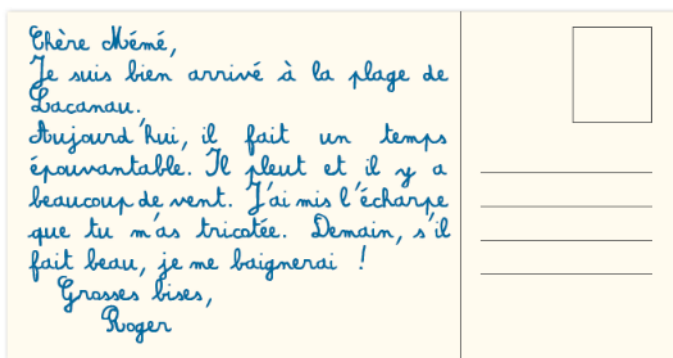 Chère Mémé,
Je suis bien arrivé à la plage de
Lacanau.
Aujourd'hui, il fait un temps
épouvantable. Il pleut et il y a
beaucoup de vent. J'ai mis l'écharpe
que tu m'as tricotée. Demain, s'il
fait beau, je me baignerai !
Grosses bises,
Roger